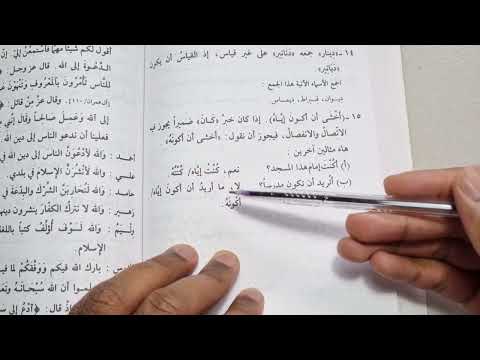 ١٤-«دِينار» جمعه «دَنَانير» على غير قياس، إذ القياسُ أن يكون
«دِيَانِير»
اجمع الأسماء الآتية هذا الجمع:
ديوان، قيراط، ديماس.
١٥-(أَخْشى أن أكونَ إيَّاهُ). إذا كان خبرُ «كانَ» ضميراً يجوز في
الاتّصالُ والانفصالُ، فيجوز أن نقول: «أخشى أن أكونَهُ»
هاه مثالين آخرين:
(أ) أكُنْتَ إمامَ هذا المسجد؟ نعم، كُنْتُ إيَّاه/ كُنْتُهُ.
(ب) أتريد أن تكون مدرساً؟ لا، ما أريدُ أن أكونَ إيَّاهُ/
أكُونَهُ.
أقول لكم شيئاً مهماً فاستمعُنَّ إليّ.
الدعوة إلى الله. قال عز وجل:
للنَّاسِ تَأْمُرُونَ بِالْمَعْرُوفِ وَتَنْهَوْنَ
(آل عمران/١١٠). وقال عزّ من قائل:
إِلَى اللهِ وَعَمِلَ صَالِحاً وَقَالَ إِنَّنِي
فعلينا أن ندعو الناس إلى دين الله
أحمد : والله لأدْعُوَنَّ الناسَ إلى دين الله
: والله لأنشُرَنَّ الإسلام في بلدي.
حامد : والله لنُحاربَنَّ الشركَ والبدْعة في
زهير : والله لا نترك الكفّار ينشرون دينهم
وليم : والله لسوف أؤلّف كتباً باللغا
الإسلام.
المدرس : بارك الله فيكم ووفّقكم لما
واعلموا أن الله سبحانه وتعا
إذ قال: ﴿ادْعُ إِلَى سَبِ